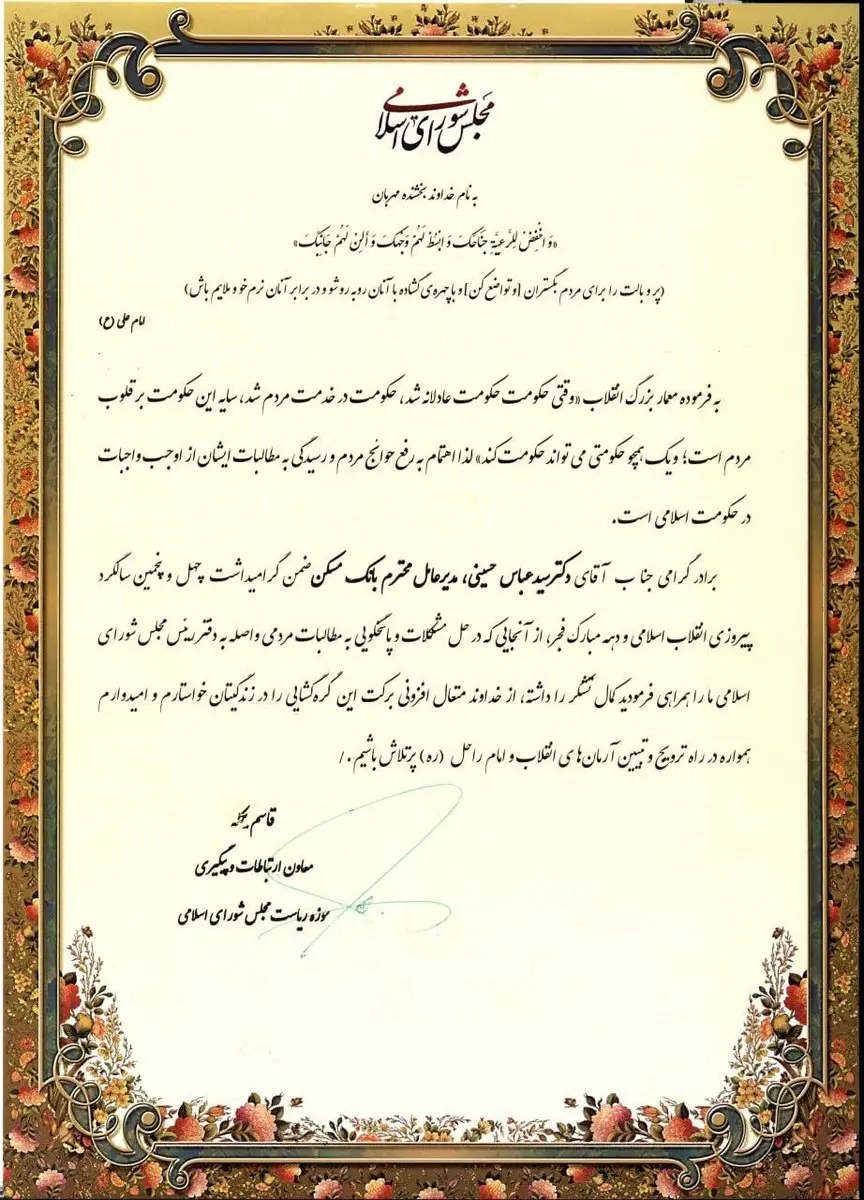 مجلس شورای اسلامی
به نام خداوند بخشنده مهربان
«وَ اخْفِضْ لِلرَّعِیَّةِ جَنَاحَکَ وَ ابْسُطْ لَهُمْ وَجْهَکَ وَ أَلِنْ لَهُمْ جَانِبَکَ»
(پر و بالت را برای مردم بگستران [و تواضع کن] و با چهره‌ی گشاده با آنان روبه رو شو و در برابر آنان نرم خو و ملایم باش)
امام علی (ع)
به فرموده معمار بزرگ انقلاب «وقتی حکومت حکومت عادلانه شد، حکومت در خدمت مردم شد، سایه این حکومت بر قلوب
مردم است؛ و یک همچو حکومتی می تواند حکومت کند» لذا اهتمام به رفع حوائج مردم و رسیدگی به مطالبات ایشان از اوجب واجبات
در حکومت اسلامی است.
برادر گرامی جناب آقای دکتر سید عباس حسینی، مدیرعامل محترم بانک مسکن ضمن گرامیداشت چهل و پنجمین سالگرد
پیروزی انقلاب اسلامی و دهه مبارک فجر، از آنجایی که در حل مشکلات و پاسخگویی به مطالبات مردمی واصله به دفتر رئیس مجلس شورای
اسلامی ما را همراهی فرمودید کمال تشکر را داشته، از خداوند متعال افزونی برکت این گره گشایی را در زندگیتان خواستارم و امیدوارم
همواره در راه ترویج و تبیین آرمان‌های انقلاب و امام راحل (ره) پرتلاش باشیم./
قاسم
معاون ارتباطات و پیگیری
حوزه ریاست مجلس شورای اسلامی